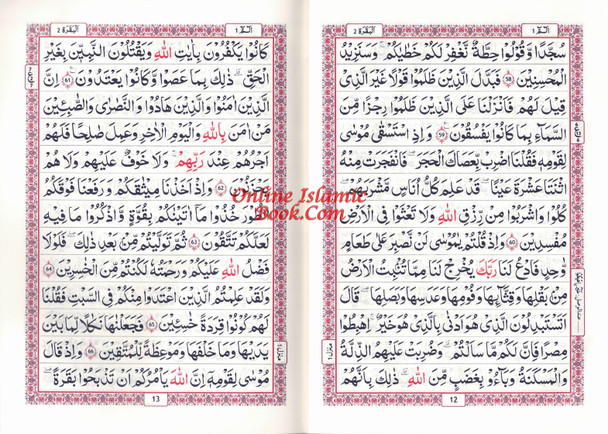 الٓـمّٓ ١
اَلْبَقَرَة ٢
سُجَّدًا وَّقُوْلُوْا حِطَّةٌ نَّغْفِرْ لَكُمْ خَطٰيٰكُمْ ؕ وَسَنَزِيْدُ
الْمُحْسِنِيْنَ ٥٨ فَبَدَّلَ الَّذِيْنَ ظَلَمُوْا قَوْلًا غَيْرَ الَّذِيْ
قِيْلَ لَهُمْ فَاَنْزَلْنَا عَلَى الَّذِيْنَ ظَلَمُوْا رِجْزًا مِّنَ
السَّمَآءِ بِمَا كَانُوْا يَفْسُقُوْنَ ٥٩ وَاِذِ اسْتَسْقٰى مُوْسٰى
لِقَوْمِهٖ فَقُلْنَا اضْرِبْ بِّعَصَاكَ الْحَجَرَ ؕ فَانْفَجَرَتْ مِنْهُ
اثْنَتَا عَشْرَةَ عَيْنًا ؕ قَدْ عَلِمَ كُلُّ اُنَاسٍ مَّشْرَبَهُمْ ؕ
كُلُوْا وَاشْرَبُوْا مِنْ رِّزْقِ اللّٰهِ وَلَا تَعْثَوْا فِى الْاَرْضِ
مُفْسِدِيْنَ ٦٠ وَاِذْ قُلْتُمْ يٰمُوْسٰى لَنْ نَّصْبِرَ عَلٰى طَعَامٍ
وَّاحِدٍ فَادْعُ لَنَا رَبَّكَ يُخْرِجْ لَنَا مِمَّا تُنْۢبِتُ الْاَرْضُ
مِنْۢ بَقْلِهَا وَقِثَّآئِهَا وَفُوْمِهَا وَعَدَسِهَا وَبَصَلِهَا ؕ قَالَ
اَتَسْتَبْدِلُوْنَ الَّذِيْ هُوَ اَدْنٰى بِالَّذِيْ هُوَ خَيْرٌ ؕ اِهْبِطُوْا
مِصْرًا فَاِنَّ لَكُمْ مَّا سَاَلْتُمْ ؕ وَضُرِبَتْ عَلَيْهِمُ الذِّلَّةُ
وَالْمَسْكَنَةُ وَبَآءُوْ بِغَضَبٍ مِّنَ اللّٰهِ ؕ ذٰلِكَ بِاَنَّهُمْ
12
الٓـمّٓ ١
اَلْبَقَرَة ٢
كَانُوْا يَكْفُرُوْنَ بِاٰيٰتِ اللّٰهِ وَيَقْتُلُوْنَ النَّبِيّٖنَ بِغَيْرِ
الْحَقِّ ؕ ذٰلِكَ بِمَا عَصَوْا وَّكَانُوْا يَعْتَدُوْنَ ٦١ اِنَّ
الَّذِيْنَ اٰمَنُوْا وَالَّذِيْنَ هَادُوْا وَالنَّصٰرٰى وَالصّٰبِـِٕيْنَ
مَنْ اٰمَنَ بِاللّٰهِ وَالْيَوْمِ الْاٰخِرِ وَعَمِلَ صَالِحًا فَلَهُمْ
اَجْرُهُمْ عِنْدَ رَبِّهِمْ ۚ وَلَا خَوْفٌ عَلَيْهِمْ وَلَا هُمْ
يَحْزَنُوْنَ ٦٢ وَاِذْ اَخَذْنَا مِيْثَاقَكُمْ وَرَفَعْنَا فَوْقَكُمُ
الطُّوْرَ ؕ خُذُوْا مَآ اٰتَيْنٰكُمْ بِقُوَّةٍ وَّاذْكُرُوْا مَا فِيْهِ
لَعَلَّكُمْ تَتَّقُوْنَ ٦٣ ثُمَّ تَوَلَّيْتُمْ مِّنْۢ بَعْدِ ذٰلِكَ ۚ فَلَوْلَا
فَضْلُ اللّٰهِ عَلَيْكُمْ وَرَحْمَتُهٗ لَكُنْتُمْ مِّنَ الْخٰسِرِيْنَ ٦٤
وَلَقَدْ عَلِمْتُمُ الَّذِيْنَ اعْتَدَوْا مِنْكُمْ فِى السَّبْتِ فَقُلْنَا
لَهُمْ كُوْنُوْا قِرَدَةً خٰسِـِٕيْنَ ٦٥ فَجَعَلْنٰهَا نَكَالًا لِّمَا بَيْنَ
يَدَيْهَا وَمَا خَلْفَهَا وَمَوْعِظَةً لِّلْمُتَّقِيْنَ ٦٦ وَاِذْ قَالَ
مُوْسٰى لِقَوْمِهٖٓ اِنَّ اللّٰهَ يَاْمُرُكُمْ اَنْ تَذْبَحُوْا بَقَرَةً ؕ
13
Online Islamic
Book.Com